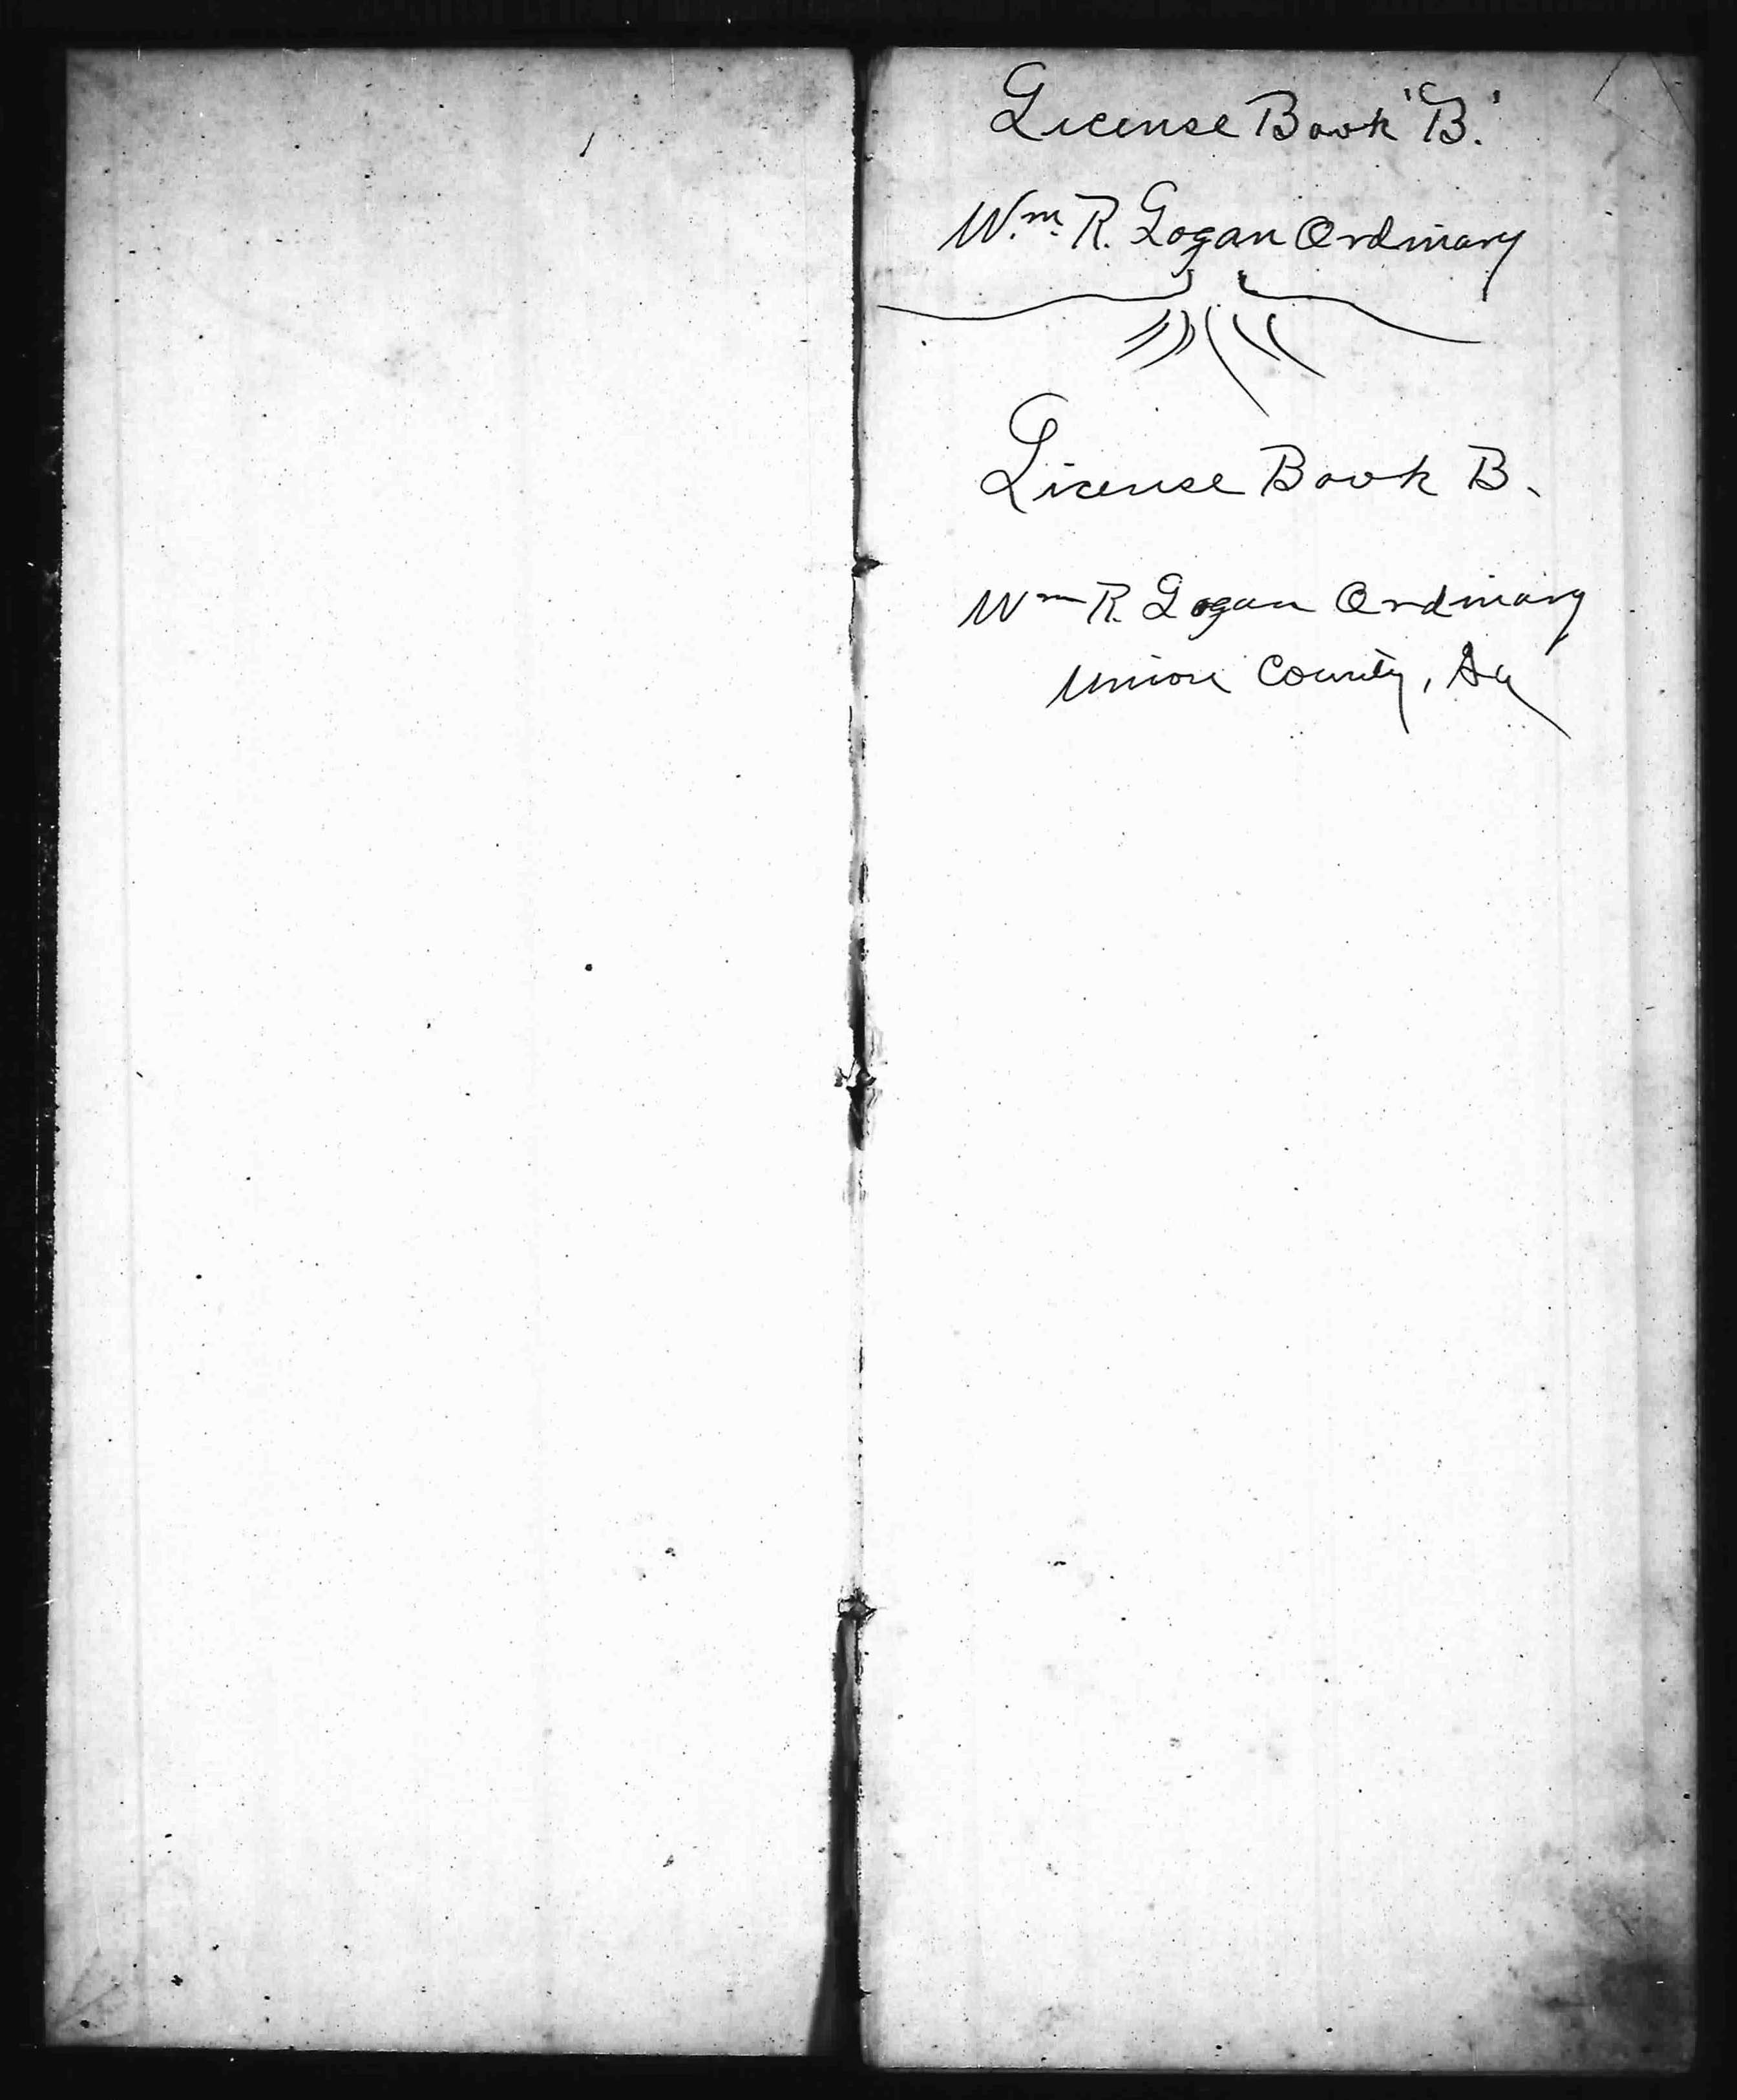 License Book "B."
Wm. R. Logan Ordinary
License Book B.
Wm R. Logan Ordinary
Union County, Ga